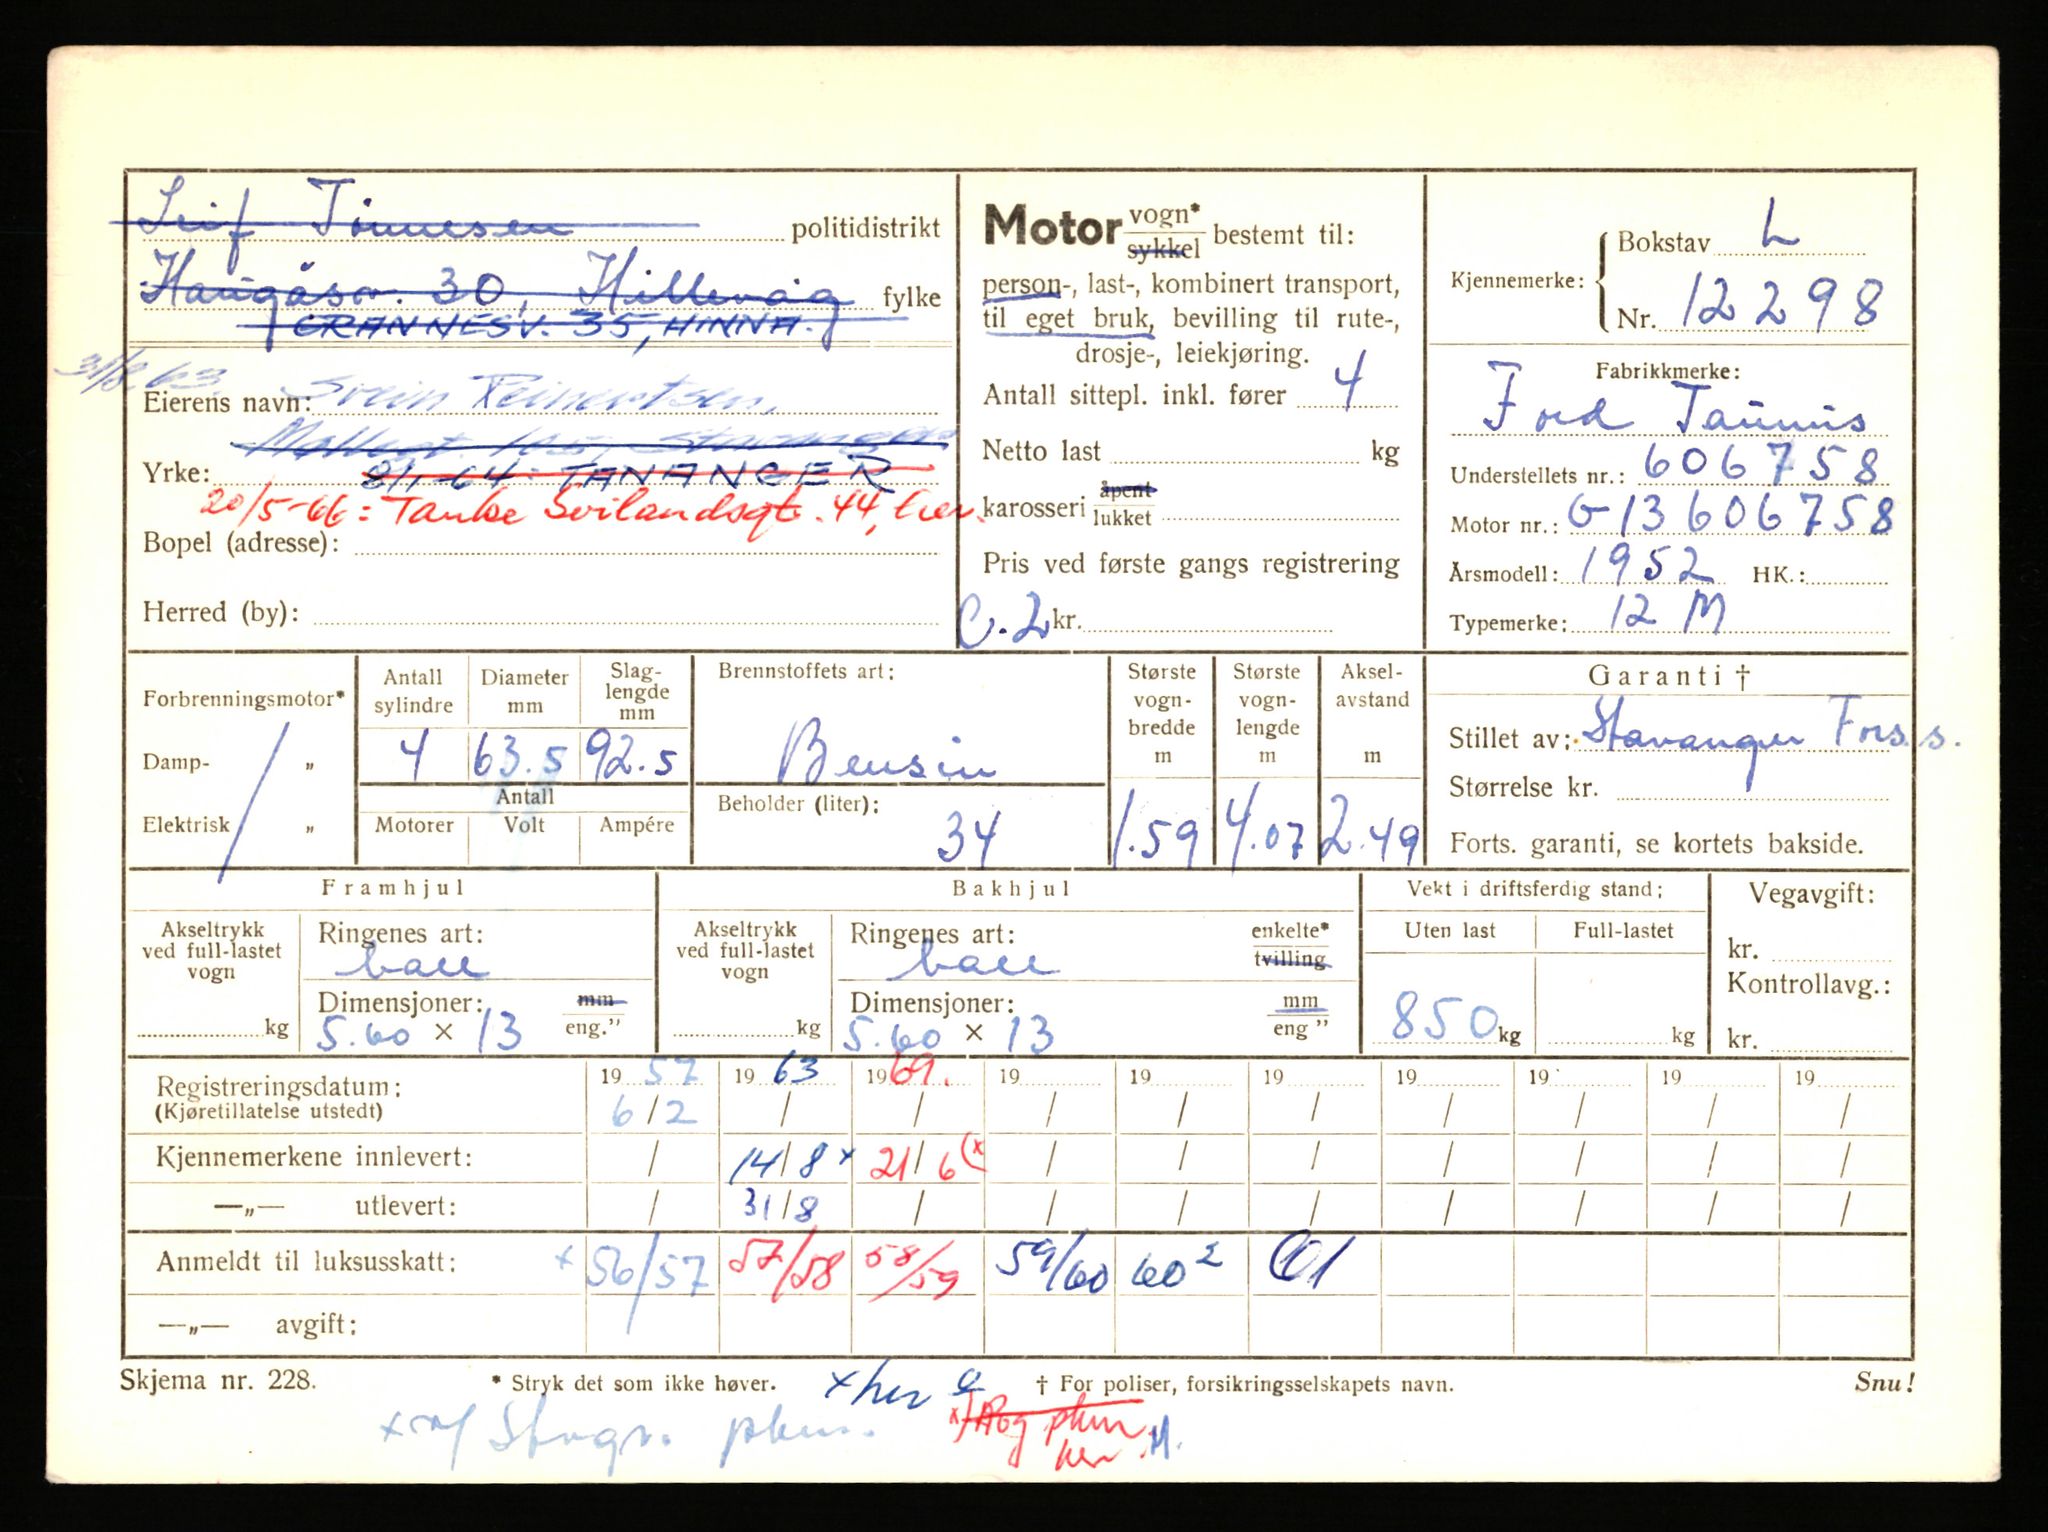 Leif Tönnesen politidistrikt
Haugåsv. 30, Hillevåg fylke
GRANNESV. 35, HINNA.
31/8.63
Eierens navn: Svein Reinertsen.
Møllegt. 105, Stavanger
Yrke: 8/1-64: TANANGER
20/5-66: Tanke Svilandsgt. 44, her.
Bopel (adresse):
Herred (by):
Motor vogn* / sykkel bestemt til:
person-, last-, kombinert transport,
til eget bruk, bevilling til rute-,
drosje-, leiekjøring.
Antall sittepl. inkl. fører 4
Netto last kg
karosseri åpent / lukket
Pris ved første gangs registrering
C.2 kr.
Kjennemerke: Bokstav L
Nr. 12298
Fabrikkmerke:
Ford Taunus
Understellets nr.: 606758
Motor nr.: G-13606758
Årsmodell: 1952 HK.:
Typemerke: 12 M
Forbrenningsmotor*
Damp- „
Elektrisk „
Antall sylindre 4
Diameter mm 63.5
Slaglengde mm 92.5
Antall
Motorer Volt Ampére
Brennstoffets art:
Bensin
Beholder (liter):
34
Største vognbredde m 1.59
Største vognlengde m 4.07
Akselavstand m 2.49
Garanti †
Stillet av: Stavanger Fors.s.
Størrelse kr.
Forts. garanti, se kortets bakside.
Framhjul
Akseltrykk ved full-lastet vogn kg
Ringenes art:
ball
Dimensjoner: mm / eng."
5.60 × 13
Bakhjul
Akseltrykk ved full-lastet vogn kg
Ringenes art: enkelte* / tvilling
ball
Dimensjoner: mm / eng "
5.60 × 13
Vekt i driftsferdig stand:
Uten last Full-lastet
850 kg kg
Vegavgift:
kr.
Kontrollavg.:
kr.
Registreringsdatum: 19 57 19 63 19 69. 19 19 19 19 19 19 19
(Kjøretillatelse utstedt) 6/2 / / / / / / / / /
Kjennemerkene innlevert: / 14/8 x 21/6 (x / / / / / / /
—„— utlevert: / 31/8 / / / / / / / /
Anmeldt til luksusskatt: x 56/57 57/58 58/59 59/60 60² 61
—„— avgift:
Skjema nr. 228. * Stryk det som ikke høver. x her † For poliser, forsikringsselskapets navn. Snu!
x v/ Stvgr. pkm. x) Rog pkm
her M.